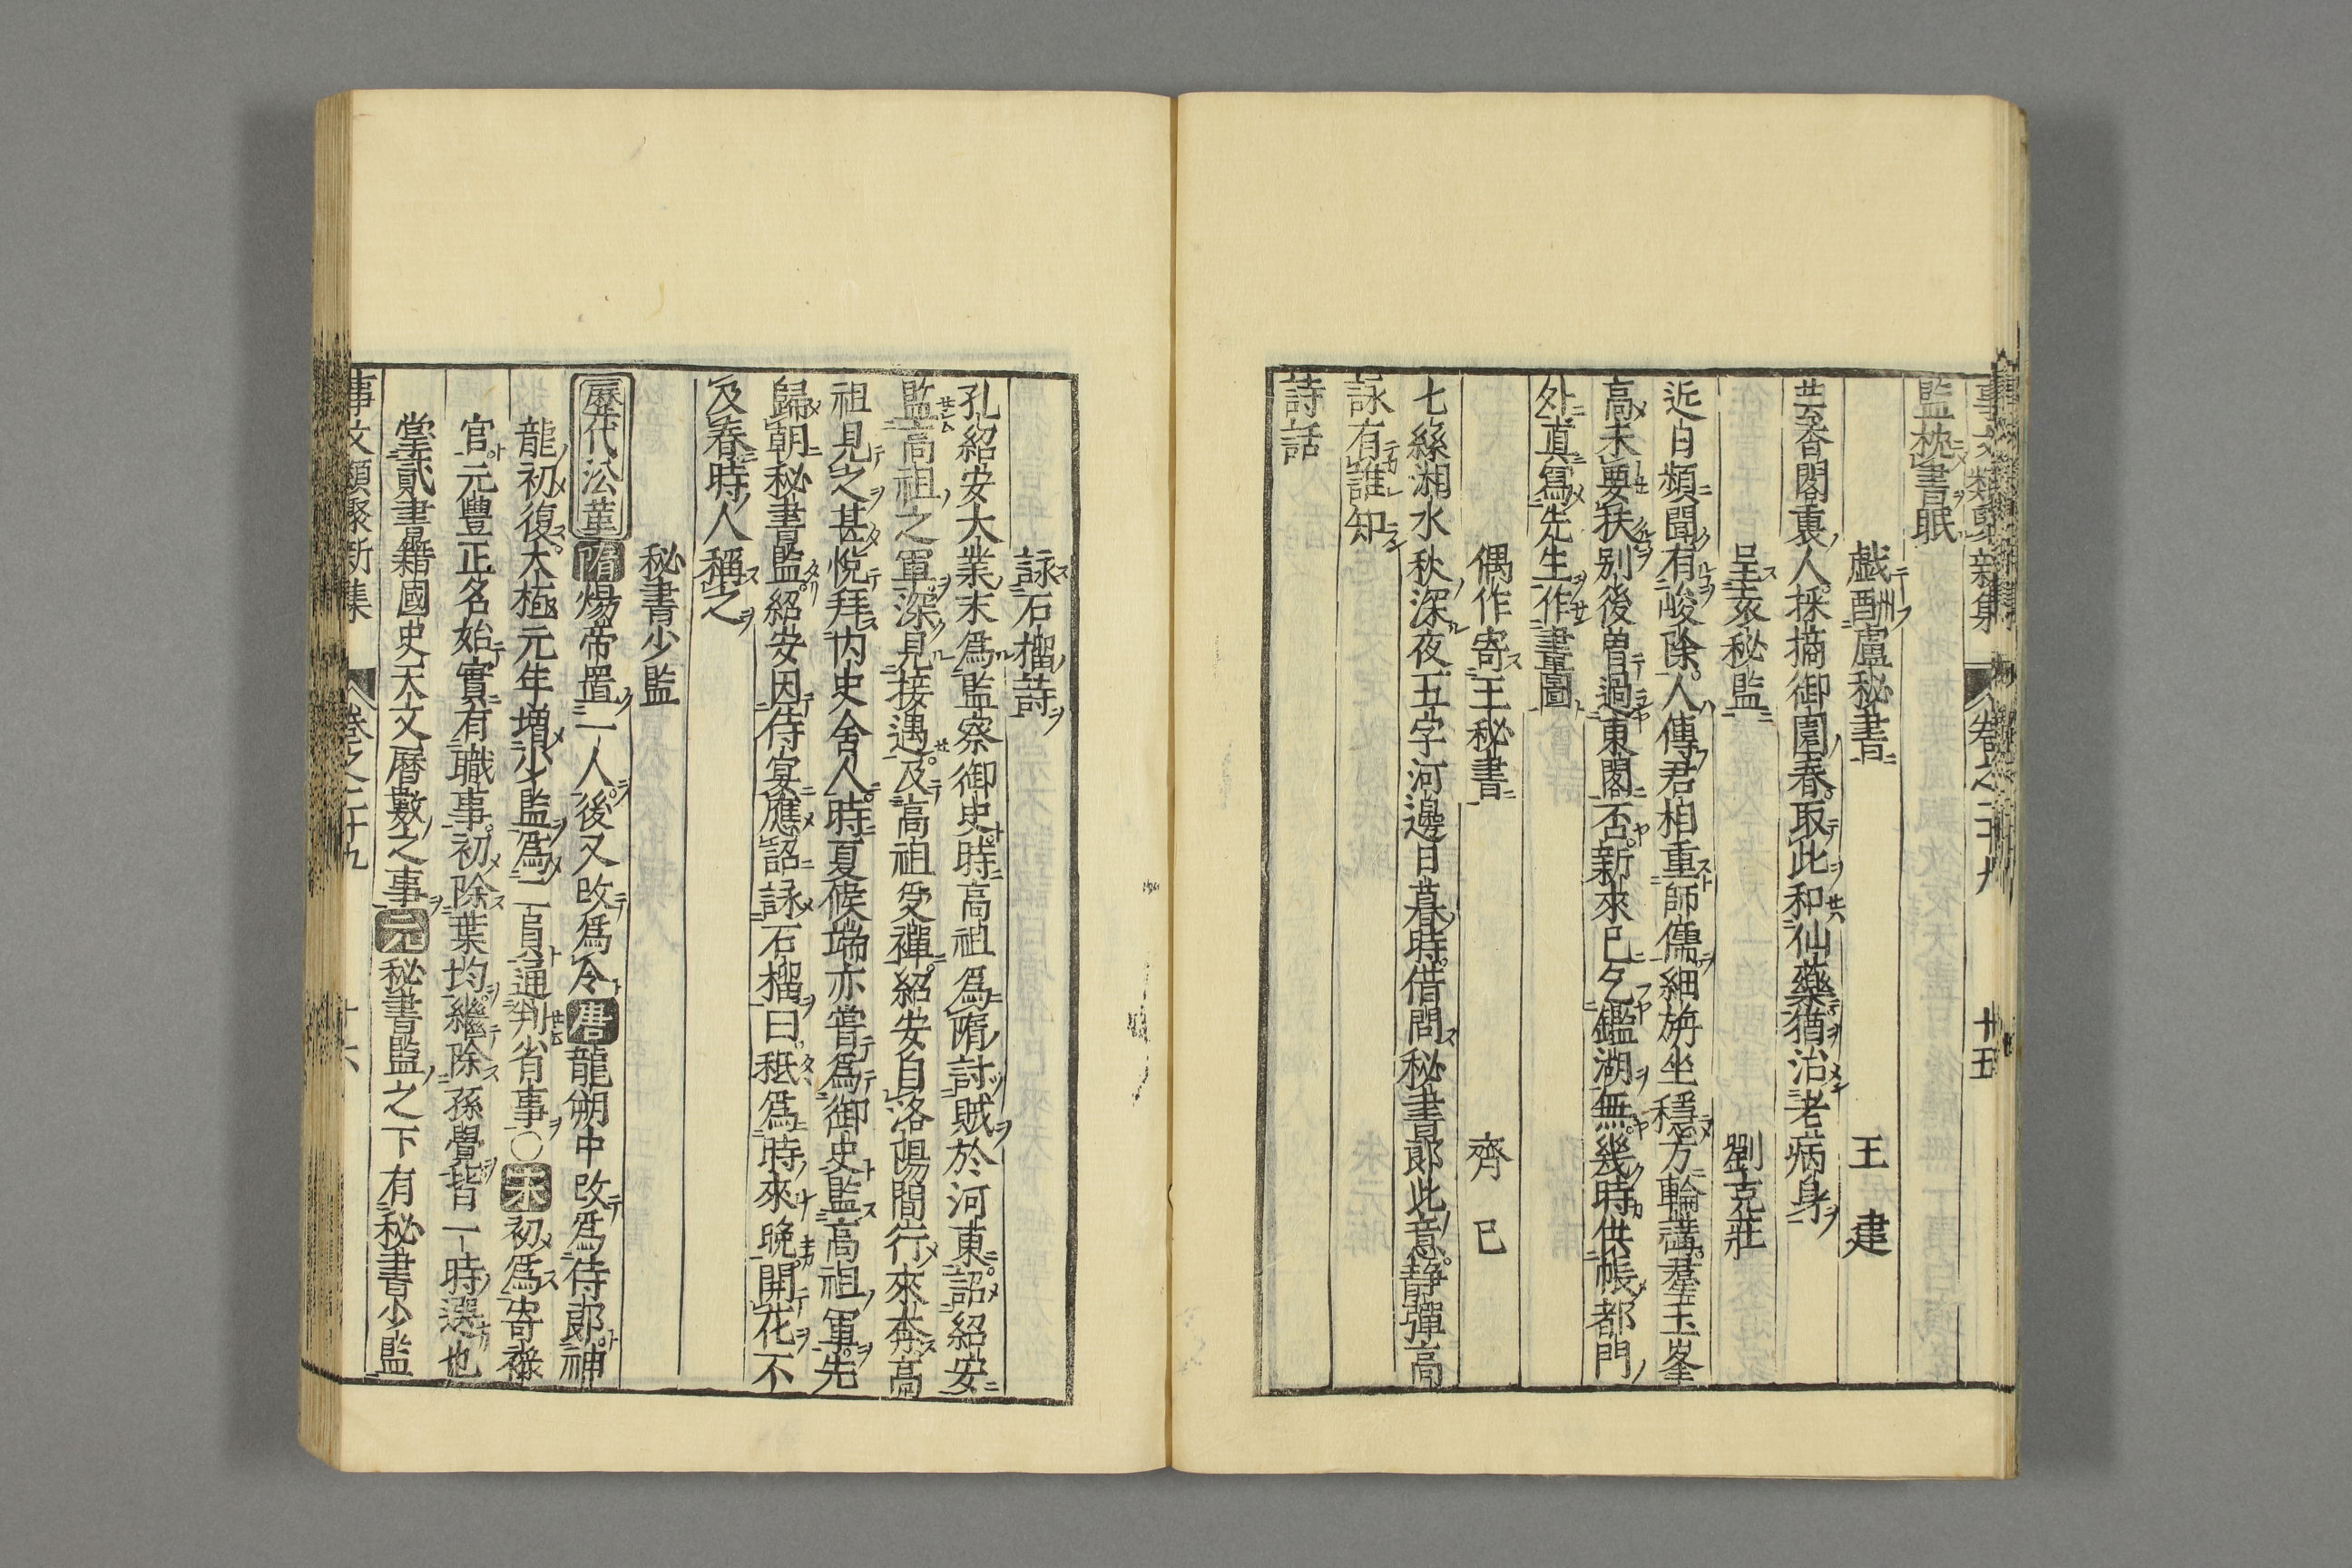 事文類聚新集 卷之二十九 十五
監枕書眠
戯酬盧秘書 王建
芸香閣裏人採摘御園春取此和仙藥猶治老病身
呈亥秘監 劉克莊
近白頻聞有峻除人傳君相重師儒細旃坐穩方輪講羣玉峯
高未要扶别後曽過東閣否新來已乞鑑湖無幾時供帳都門
外直寫先生作畫圖
偶作寄王秘書 齊已
七絲湘水秋深夜五字河邊日暮時借問秘書郎此意静彈高
詠有誰知
詩話
詠石榴詩
孔紹安大業末爲監察御史時高祖爲隋討賊於河東詔紹安
監高祖之軍深見接遇及高祖受禪紹安自洛陽間行來奔高
祖見之甚悅拜内史舍人時夏候端亦嘗爲御史監高祖軍先
歸朝秘書監紹安因侍宴應詔詠石榴曰秪爲時來晚開花不
及春時人稱之
秘書少監
歷代㳂革 隋煬帝置一人後又改爲令唐龍朔中改爲侍郎神
龍初復太極元年増少監爲二員通判省事〇宋初爲寄祿
官元豐正名始實有職事初除葉均繼除孫覺皆一時選也
掌貳書籍國史天文暦數之事元秘書監之下有秘書少監
事文類聚新集 卷之二十九 十六